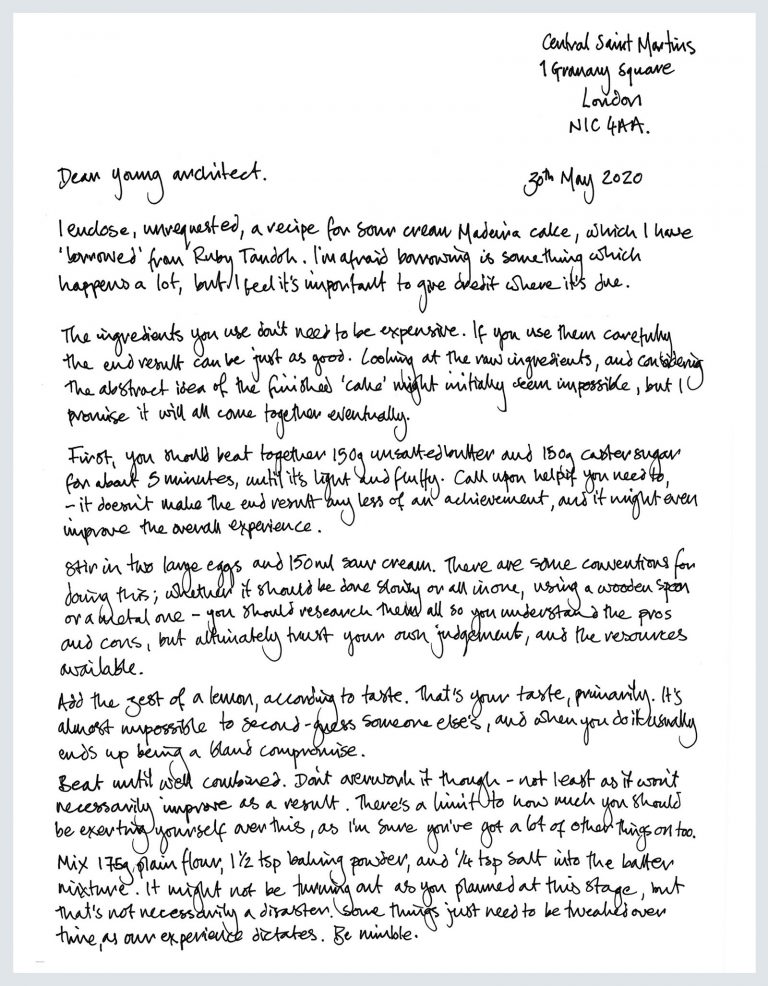 Central Saint Martins
1 Granary Square
London
N1C 4AA.
Dear young architect.
30th May 2020
I enclose, unrequested, a recipe for sour cream Madeira cake, which I have
'borrowed' from Ruby Tandoh. I'm afraid borrowing is something which
happens a lot, but I feel it's important to give credit where it's due.
The ingredients you use don't need to be expensive. If you use them carefully
the end result can be just as good. Looking at the raw ingredients, and considering
the abstract idea of the finished 'cake' might initially seem impossible, but I
promise it will all come together eventually.
First, you should beat together 150g unsalted butter and 150g caster sugar
for about 5 minutes, until it's light and fluffy. Call upon help if you need to,
- it doesn't make the end result any less of an achievement, and it might even
improve the overall experience.
Stir in two large eggs and 150ml sour cream. There are some conventions for
doing this; whether it should be done slowly or all in one, using a wooden spoon
or a metal one - you should research them all so you understand the pros
and cons, but altimately trust your own judgement, and the resources
available.
Add the zest of a lemon, according to taste. That's your taste, primarily. It's
almost impossible to second-guess someone else's, and when you do it usually
ends up being a bland compromise.
Beat until well combined. Don't overwork it though - not least as it won't
necessarily improve as a result. There's a limit to how much you should
be exerting yourself over this, as I'm sure you've got a lot of other things on too.
Mix 175g plain flour, 1 1/2 tsp baking powder, and 1/4 tsp salt into the batter
mixture. It might not be turning out as you planned at this stage, but
that's not necessarily a disaster. Some things just need to be tweaked over
time, as our experience dictates. Be nimble.